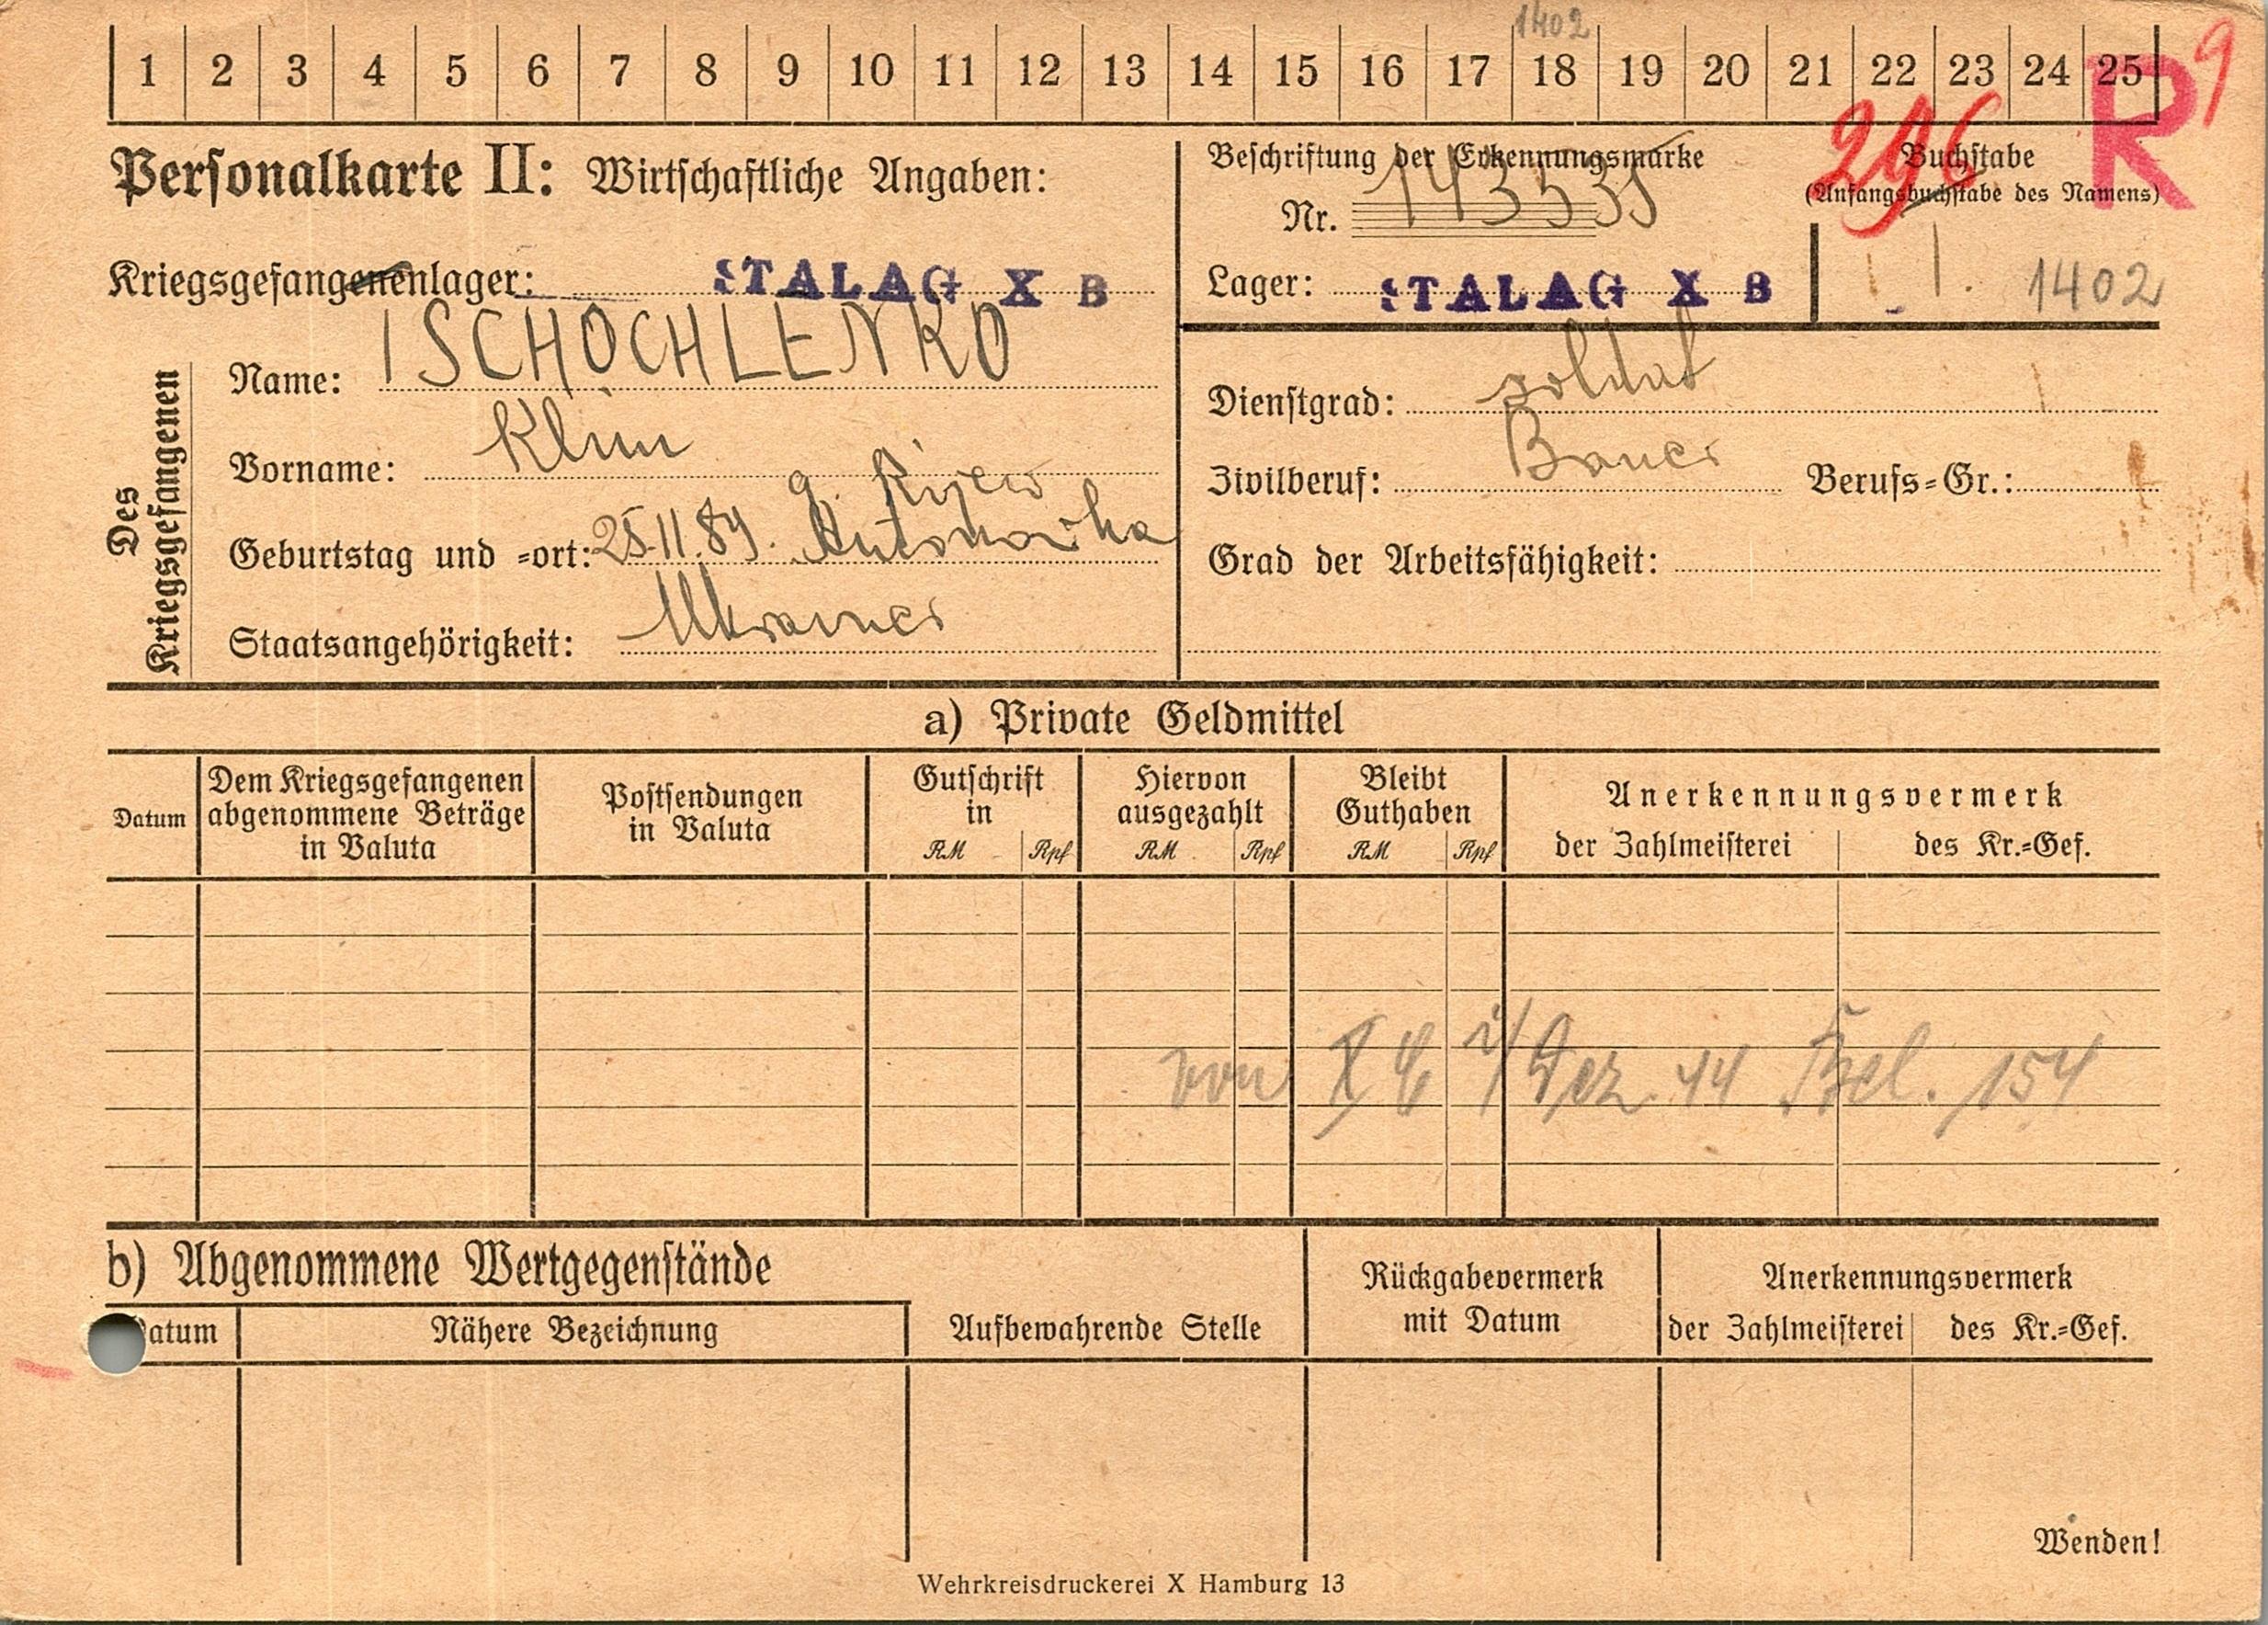 1402
1 2 3 4 5 6 7 8 9 10 11 12 13 14 15 16 17 18 19 20 21 22 23 24 25
R 9
296
Personalkarte II: Wirtschaftliche Angaben:
Beschriftung der Erkennungsmarke
Nr. 143535
Buchstabe
(Anfangsbuchstabe des Namens)
Kriegsgefangenenlager: STALAG X B
Lager: STALAG X B
1402
Des Kriegsgefangenen
Name: TSCHOCHLENKO
Vorname: Klim
g. Kijew
Geburtstag und =ort: 25.11.89. Antonowka
Staatsangehörigkeit: Ukrainer
Dienstgrad: soldat
Zivilberuf: Bauer Berufs=Gr.:
Grad der Arbeitsfähigkeit:
a) Private Geldmittel
Datum
Dem Kriegsgefangenen
abgenommene Beträge
in Valuta
Postsendungen
in Valuta
Gutschrift
in
RM Rpf
Hiervon
ausgezahlt
RM Rpf
Bleibt
Guthaben
RM Rpf
Anerkennungsvermerk
der Zahlmeisterei des Kr.=Gef.
von X C i/Dez. 44 Bel. 154
b) Abgenommene Wertgegenstände
atum
Nähere Bezeichnung
Aufbewahrende Stelle
Rückgabevermerk
mit Datum
Anerkennungsvermerk
der Zahlmeisterei des Kr.=Gef.
Wenden!
Wehrkreisdruckerei X Hamburg 13